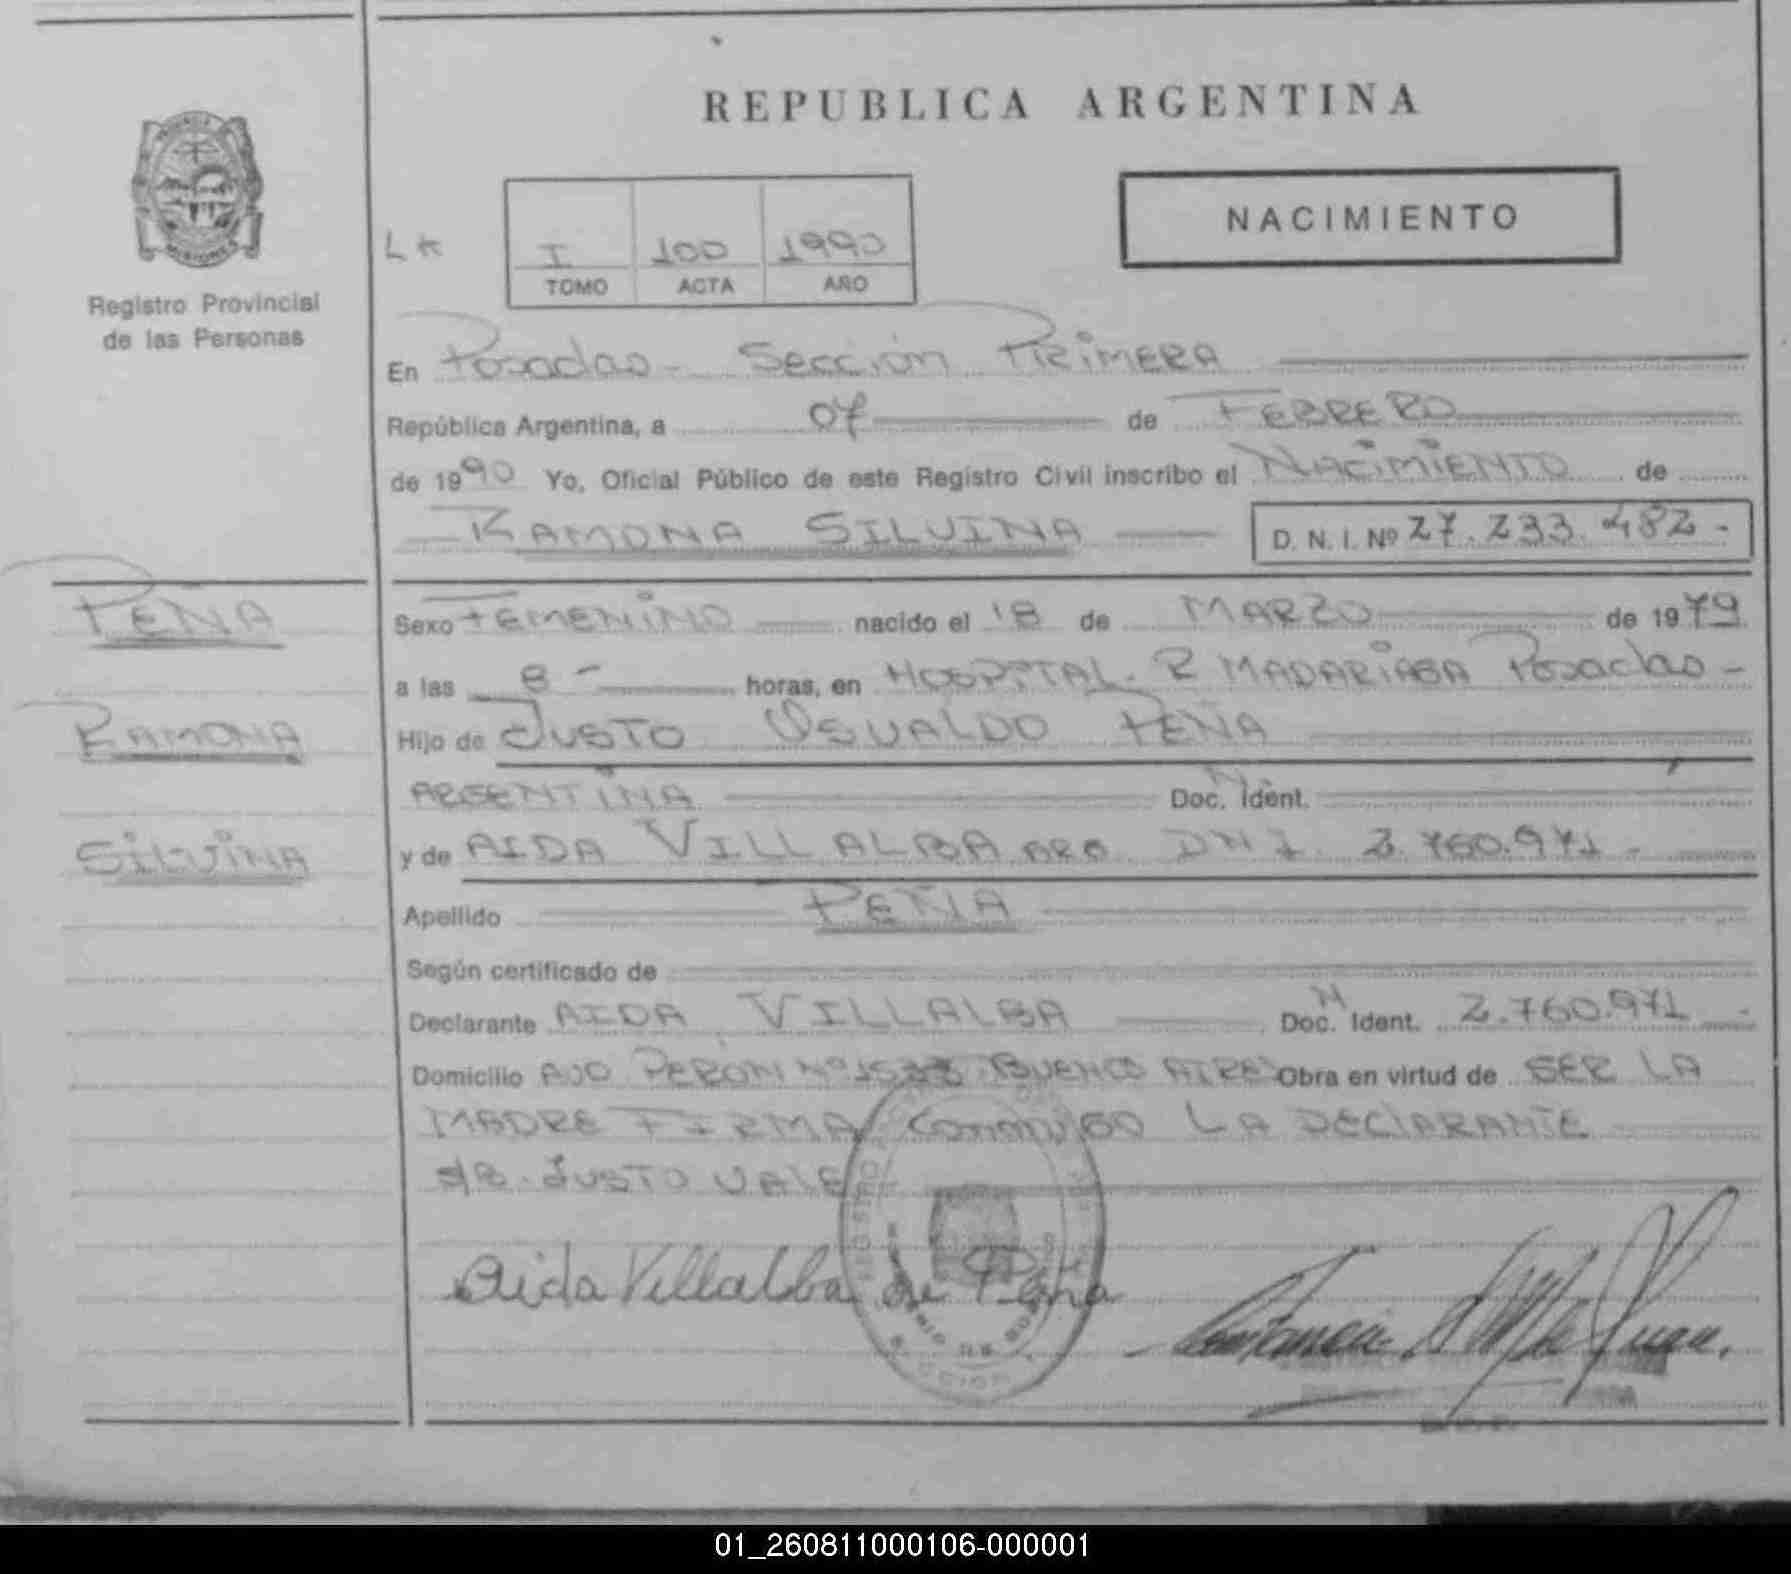 REPUBLICA ARGENTINA
NACIMIENTO
Registro Provincial
de las Personas
I 100 1990
TOMO ACTA AÑO
En Posadas - Sección Primera
República Argentina, a 07 de FEBRERO
de 1990 Yo, Oficial Público de este Registro Civil inscribo el NACIMIENTO de
RAMONA SILVINA D. N. I. Nº 27.233.482 -
PEÑA
RAMONA
SILVINA
Sexo FEMENINO nacido el 18 de MARZO de 1979
a las 8 - horas, en HOSPITAL. R MADARIAGA Posadas -
Hijo de JUSTO OSVALDO PEÑA
ARGENTINA Doc. Ident.
y de AIDA VILLALBA ARG. DNI 2.760.971 -
Apellido PEÑA
Según certificado de
Declarante AIDA VILLALBA Doc. Ident. 2.760.971 -
Domicilio PERON Nº BUENOS AIRES Obra en virtud de SER LA
MADRE FIRMA conmigo LA DECLARANTE
JUSTO VALE
Aida Villalba de Peña
01_260811000106-000001